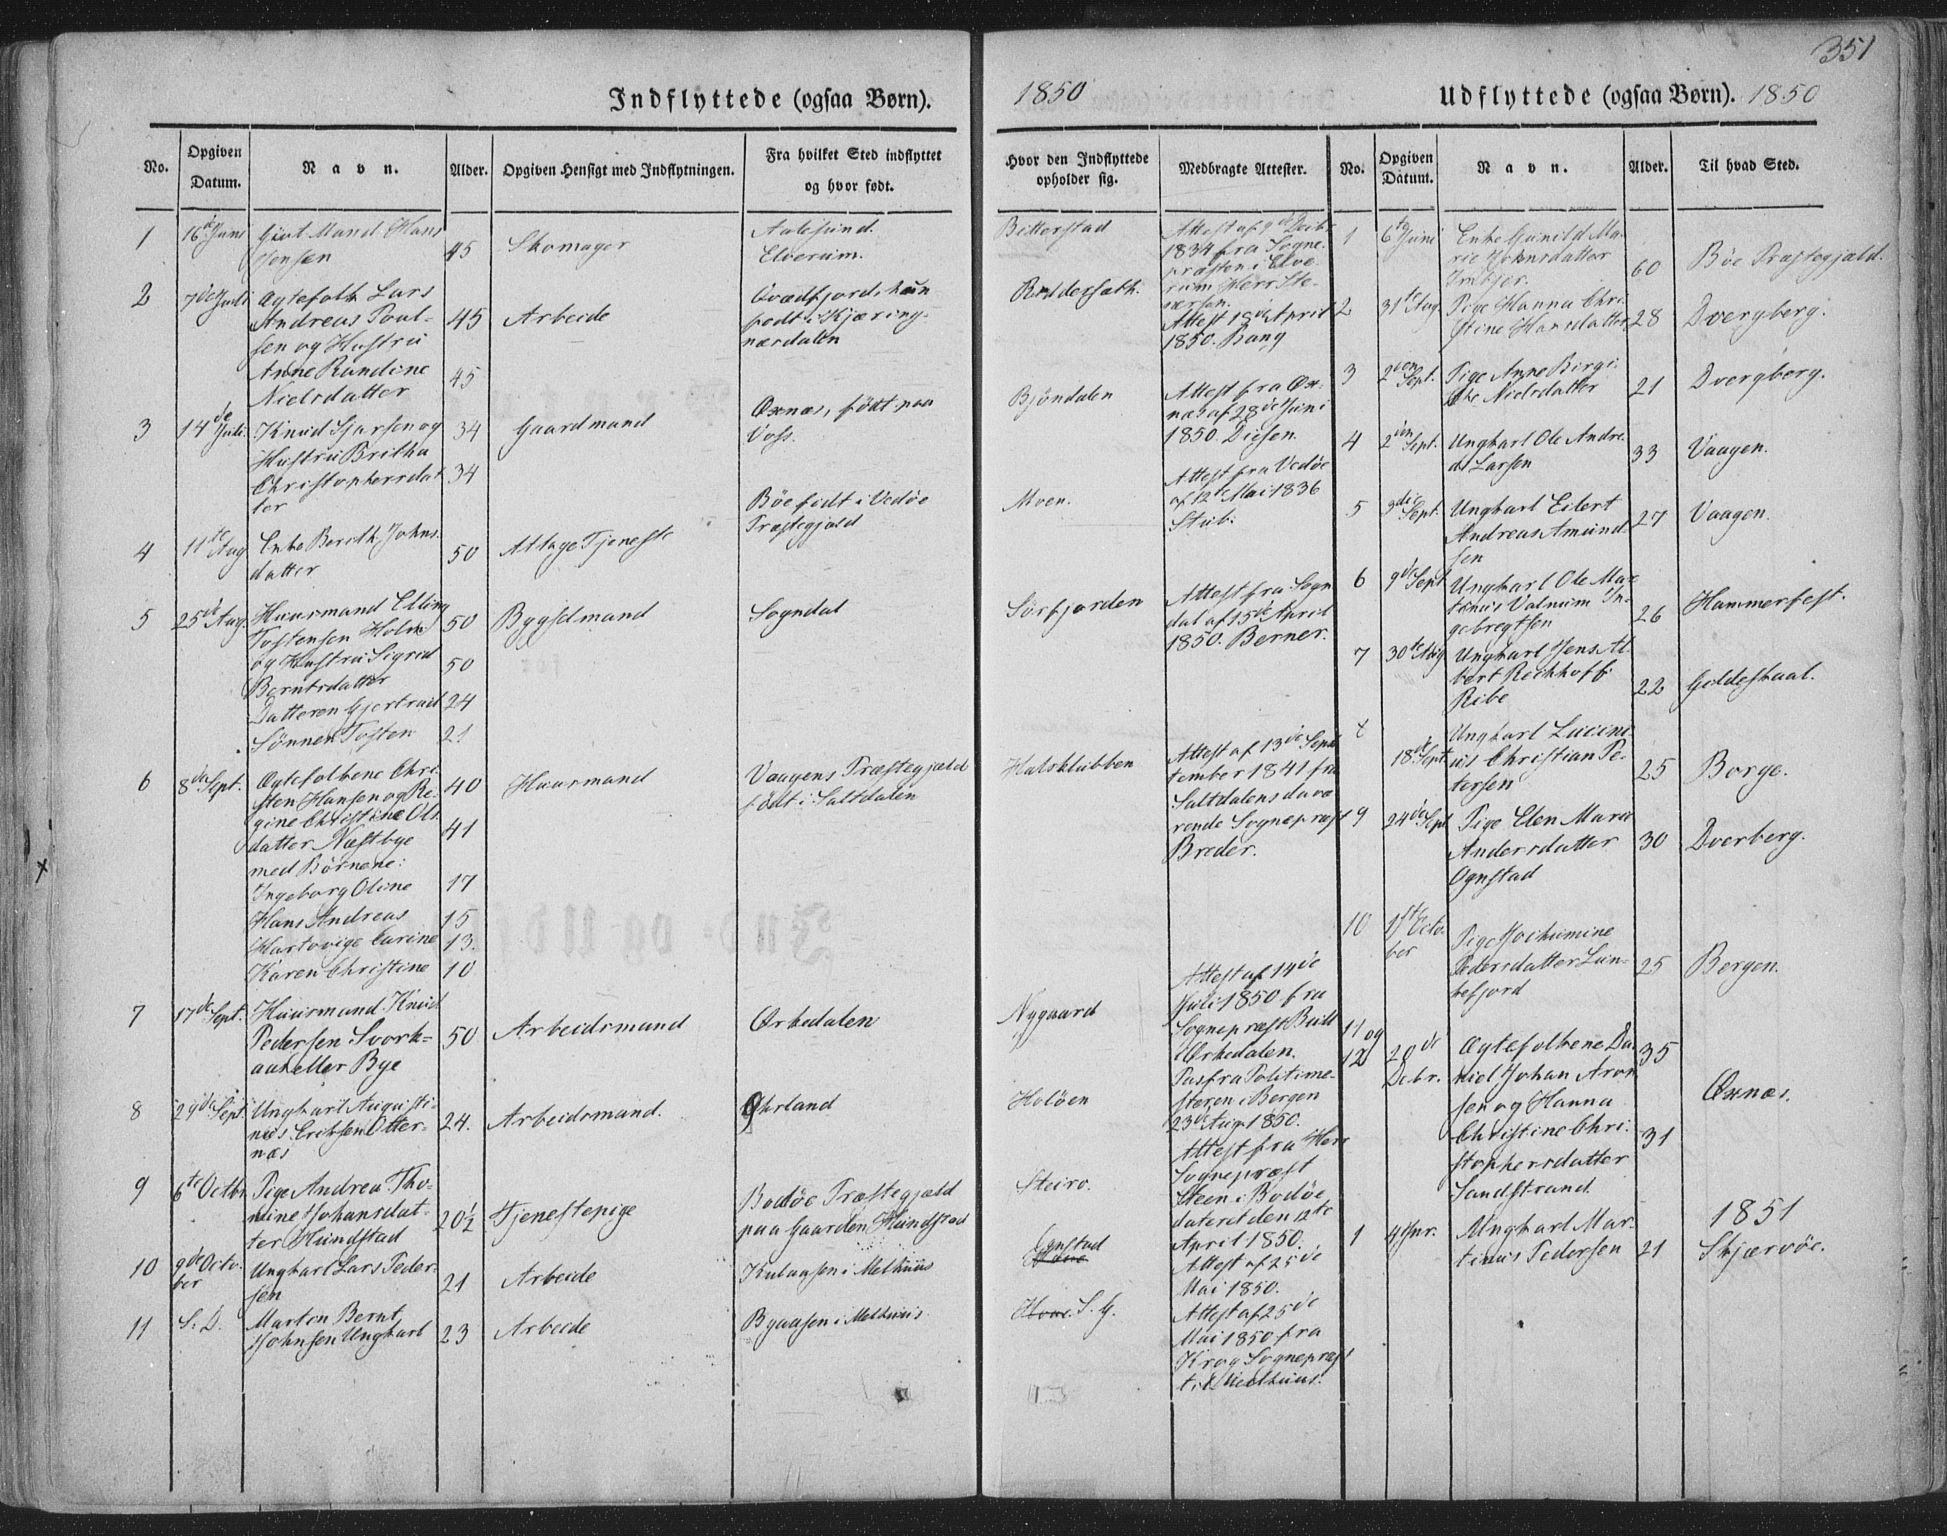 351
Indflyttede (ogsaa Børn). 1850
No.
Opgiven Datum.
Navn.
Alder.
Opgiven Hensigt med Indflytningen.
Fra hvilket Sted indflyttet og hvor født.
Hvor den Indflyttede opholder sig.
Medbragte Attester.
1 16de Juni Givt Mand Hans
Jensen 45 Skomager
Aalesund.
Elverum.
Bitterstad
Attest af 9de Decbr
1834 fra Sogne-
præsten i Elve-
rum Herr Ste-
nersen.
2 7de Juli Ægtefolk Lars
Andreas Poul- 45 Arbeide
sen og Hustru
Anne Randine 45
Nielsdatter
Qvædfjord, han
født i Kjæring-
nærdalen
Attest 18de April
1850. Bang
3 14de Juli Knud Sjursen og 34 Gaardmand
Hustru Britha
Christophersdat 34
ter
Øxnæs, født paa
Voss.
Bjöndalen
Attest fra Øx-
næs af 28de Juni
1850. Diesen.
4 11te Aug Enke Berith Johns
datter 50 At tage Tjeneste
Böe født i Vedöe
Præstegjæld
Moen.
Attest fra Vedöe
af 12te Mai 1836
Stub.
5 25de Aug. Huusmand Elling
Tostensen Holm 50 Bygselmand
og Hustru Sigrid 50
Berntsdatter
Datteren Gjertrud 24
Sönnen Tosten 21
Sogndal
Sörfjorden
Attest fra Sogn
dal af 15de April
1850. Berner.
6 8de Sept. Ægtefolkene Chri-
sten Hansen og Re- 40 Huusmand
gine Christine Ols
datter Næstbye 41
med Börnene:
Ingeborg Oline 17
Hans Andreas 15
Hartvige Carine 13.
Karen Christine 10
Vaagens Præstegjæld
födt i Saltdalen
Halsklubben
Attest af 13de Sep-
tember 1841 fra
Saltdalens davæ
rende Sognepræst
Breder.
7 17de Sept. Huusmand Knud
Pedersen Svork= 50 Arbeidsmand
aak eller Bye
Ørkedalen
Nygaard
Attest af 14de
Juli 1850 fra
Sognepræst Bull
i Ørkedalen.
8 29de Sept. Ungkarl Augusti-
nus Eriksen Otter- 24. Arbeidsmand.
næs
Holöen
Pas fra Politime-
steren i Bergen
23de Aug 1850.
9 6te Octbr. Pige Andrea Tho-
mine Johansdat- 20½ Tjenestepige
ter Hundstad
Bodöe Præstegjæld
paa Gaarden Hundstad
Steiro.
Attest fra Herr
Sognepræst
Steen i Bodöe
dateret den 12te
April 1850.
10 9de Octo-
ber Ungkarl Lars Peder-
sen 21 Arbeide
i Melhuus
Ognstad
Attest af 25de
Mai 1850.
11 S. D. Marten Bernt
Johnsen Ungkarl 23 Arbeide
Byaasen i Melhuus
S. G.
Attest af 25de
Mai 1850 fra
Krog Sognepræst
til Melhuus.
Udflyttede (ogsaa Børn). 1850
No.
Opgiven Datum.
Navn.
Alder.
Til hvad Sted.
1 6te Juni Enke Gunild Ma-
rie Johnsdatter
60 Böe Præstegjæld.
2 31te Aug. Pige Hanna Chri-
stine Hansdatter 28 Dvergberg.
3 2den Sept. Pige Anne Birgi-
the Nielsdatter 21 Dvergberg.
4 2den Sept. Ungkarl Ole Andre-
as Larsen 33 Vaagen.
5 3die Sept. Ungkarl Eilert
Andreas Amund- 27 Vaagen.
sen
6 9de Sept Ungkarl Ole Mar-
tinus Valnum In-
gebregtsen 26 Hammerfest.
7 30te Aug Ungkarl Jens Al-
bert Reichhoff
Ribe 22 Gildeskaal.
8 18de Sept. Ungkarl Lucini-
us Christian Pe- 25 Borge.
tersen
9 24de Sept Pige Elen Maria
Andersdatter 30 Dverberg.
Ognstad
10 1ste Octo-
ber Pige Jochumine
Pedersdatter Lan- 25 Bergen.
kefjord
11 og
12 20de
Debr. Ægtefolkene Da- 35
niel Johan Aron
sen og Hanna Øxnæs.
Christine Chri- 31
stophersdatter
Sandstrand.
1851
1 4 Jnr. Ungkarl Mar-
tinus Pedersen 21 Skjærvöe.